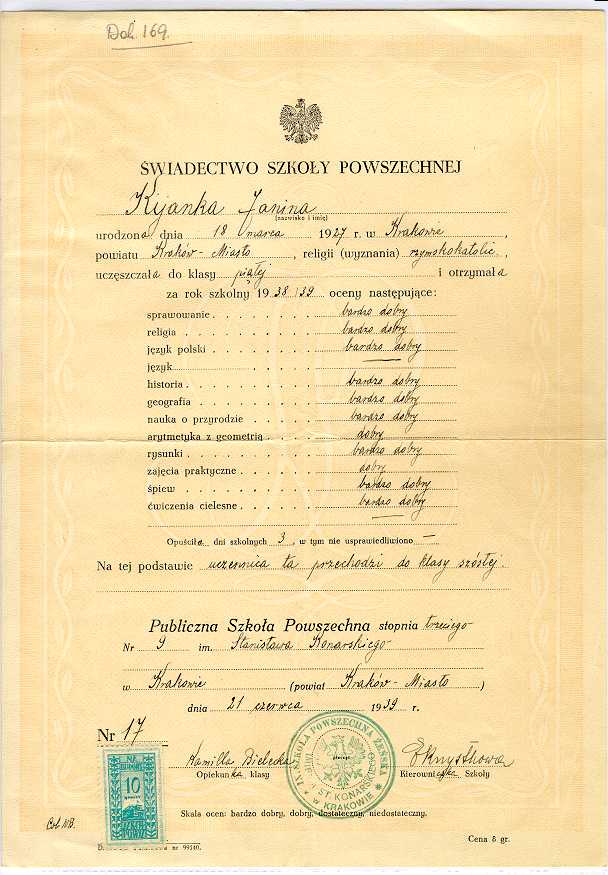 Dok. 169.
ŚWIADECTWO SZKOŁY POWSZECHNEJ
Kijanka Janina
(nazwisko i imię)
urodzona dnia 18 marca 1927 r. w Krakowie,
powiatu Kraków-Miasto, religii (wyznania) rzymskokatolic.,
uczęszczała do klasy piątej i otrzymała
za rok szkolny 1938/39 oceny następujące:
sprawowanie . . . . . . bardzo dobry
religia . . . . . . . bardzo dobry
język polski . . . . . . bardzo dobry
język —
historia . . . . . . . bardzo dobry
geografia . . . . . . bardzo dobry
nauka o przyrodzie . . . . bardzo dobry
arytmetyka z geometrią . . . dobry
rysunki . . . . . . . bardzo dobry
zajęcia praktyczne . . . . . dobry
śpiew . . . . . . . bardzo dobry
ćwiczenia cielesne . . . . . bardzo dobry
—
Opuściła dni szkolnych 3, w tym nie usprawiedliwiono —
Na tej podstawie uczennica ta przechodzi do klasy szóstej.
Publiczna Szkoła Powszechna stopnia trzeciego
Nr 9 im. Stanisława Konarskiego
w Krakowie (powiat Kraków-Miasto)
dnia 21 czerwca 1939 r.
Nr 17
Kamilla Bielecka
Opiekunka klasy
pieczęć
SZKOŁA POWSZECHNA ŻEŃSKA
ST. KONARSKIEGO
W KRAKOWIE
Kierowniczka Szkoły
10
Skala ocen: bardzo dobry, dobry, dostateczny, niedostateczny.
nr 99140.
Cena 5 gr.